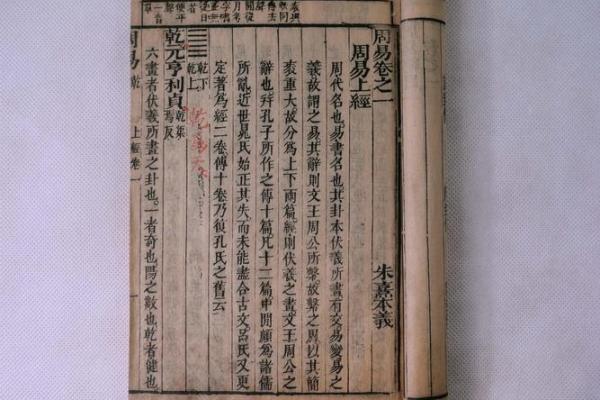 周易卷之一 朱熹本義
周易上經
周代名也易書名也其卦本伏羲所畫有交易變易之
義故謂之易其辭則文王周公所繫故繫之周以其簡
袠重大故分爲上下兩篇經則伏羲之畫文王周公之
辭也并孔子所作之傳十篇凡十二篇中閒頗爲諸儒
所亂近世晁氏始正其失而未能盡合古文呂氏又更
定著爲經二卷傳十卷乃復孔氏之舊云
乾下
乾上
乾爲天
乾元亨利貞 乾渠焉反
六畫者伏羲所畫之卦也一者奇也陽之數也乾者健也
周易 乾 上經卷一 一